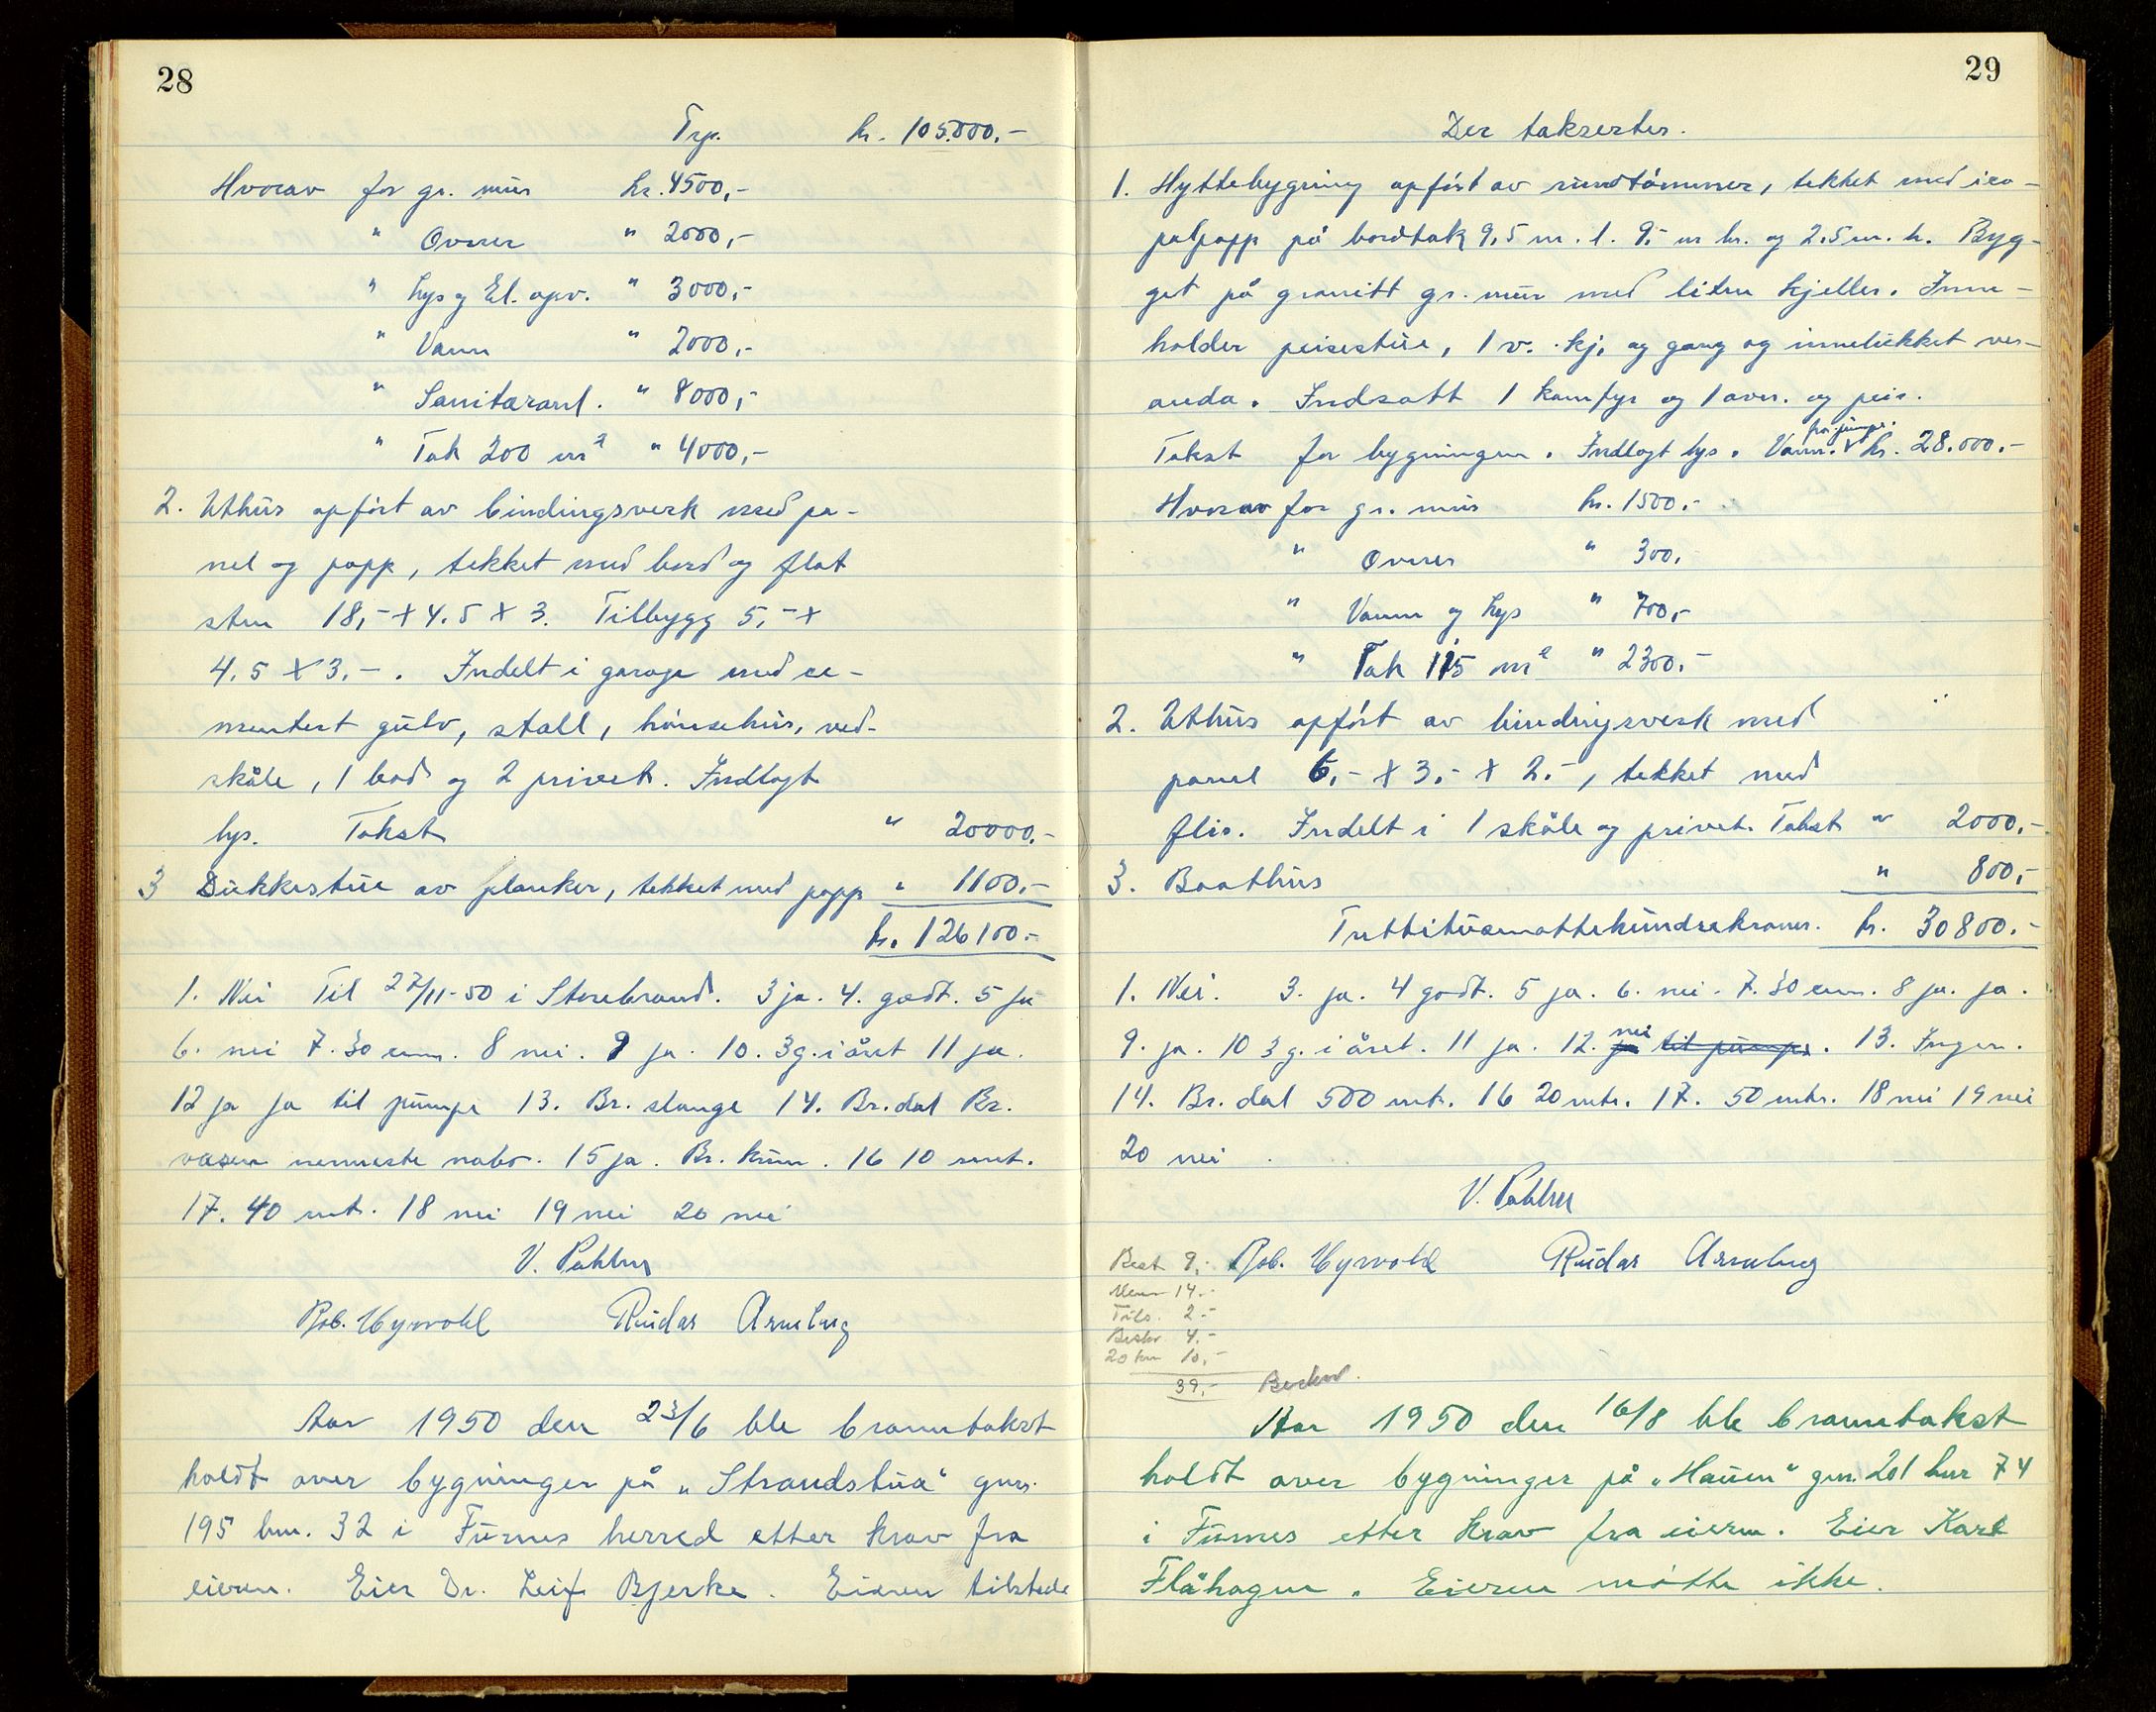 28
Trp. kr. 105.000,-
Hvorav for gr. mur kr. 4500,-
" Ovner " 2000,-
" Lys og El. opv. " 3000,-
" Vann " 2000,-
" Sanitæranl. " 8000,-
" Tak 200 m² " 4000,-
2. Uthus opført av bindingsverk med pa-
nel og papp, tekket med bord og flat
sten 18,- x 4.5 x 3. Tilbygg 5,- x
4.5 x 3.-. Indelt i garage med ce-
mentert gulv, stall, hønsehus, ved-
skåle, 1 bod og 2 privet. Indlagt
lys. Takst " 20000.-
3 Dukkestue av planker, tekket med papp " 1100.-
kr. 126100.-
1. Nei Til 27/11-50 i Storebrand. 3 ja. 4. godt. 5 ja
6. nei 7. 30 cm. 8 nei. 9 ja. 10. 3 g. i året 11 ja.
12 ja ja til pumpe 13. Br. slange 14. Br.dal Br.
vasen nermeste nabo. 15 ja. Br. kum. 16 10 mt.
17. 40 mt. 18 nei 19 nei 20 nei
V. Pahlm
Joh. Hyrvold Ruidar Arneberg
Aar 1950 den 23/6 ble branntakst
holdt over bygninger på „Strandstua" gnr.
195 bnr. 32 i Furnes herred etter krav fra
eieren. Eier Dr. Leif Bjerke. Eieren tilstede
29
Der taksertes.
1. Hyttebygning opført av rundtømmer, tekket med ico-
palpapp på bordtak 9,5 m. l. 9,- m br. og 2.5 m. h. Byg-
get på granitt gr. mur med liten kjeller. Inne-
holder peisestue, 1 v. kj. og gang og innelukket ver-
anda. Indsatt 1 komfyr og 1 ovn. og peis.
Takst for bygningen. Indlagt lys. Vann. fra pumpe. kr. 28.000.-
Hvorav for gr. mur kr. 1500.-
" Ovner " 300,
" Vann og Lys " 700,-
" Tak 115 m² " 2300.-
2. Uthus opført av bindingsverk med
panel 6,- x 3.- x 2.-, tekket med
flis. Indelt i 1 skåle og privet. Takst " 2000.-
3. Baathus " 800,-
Trettitusenottehundrekroner. kr. 30800.-
1. Nei. 3. ja. 4 godt. 5 ja. 6. nei. 7. 30 cm. 8 ja. ja.
9. ja. 10 3 g. i året. 11 ja. 12. nei ja til pumpe. 13. Ingen.
14. Br. dal 500 mt. 16 20 mtr. 17. 50 mtr. 18 nei 19 nei
20 nei
V. Pahlm
Joh. Hyrvold Ruidar Arneberg
Best 9,-
Menn 14.-
Tils. 2.-
Beskr 4.-
20 km 10,-
39,-
Aar 1950 den 16/8 ble branntakst
holdt over bygninger på „Hauen" gnr. 201 bnr 74
i Furnes etter krav fra eieren. Eier Karl
Flåhagen. Eieren møtte ikke.